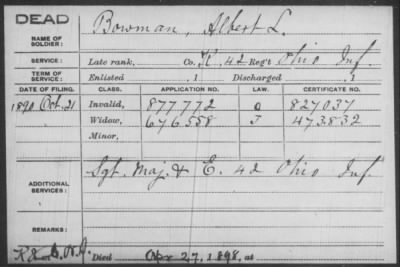 DEAD
Bowman, Albert L.
NAME OF SOLDIER:
SERVICE: Late rank, Co. K, 42 Reg't Ohio Inf.
TERM OF SERVICE: Enlisted , 1 Discharged , 1
DATE OF FILING. CLASS. APPLICATION NO. LAW. CERTIFICATE NO.
1890 Oct. 21 Invalid, 877772 827037
Widow, 676558 J 473832
Minor,
ADDITIONAL SERVICES: Sgt. Maj. & E. 42 Ohio Inf.
REMARKS:
Died Apr 27, 1898, at